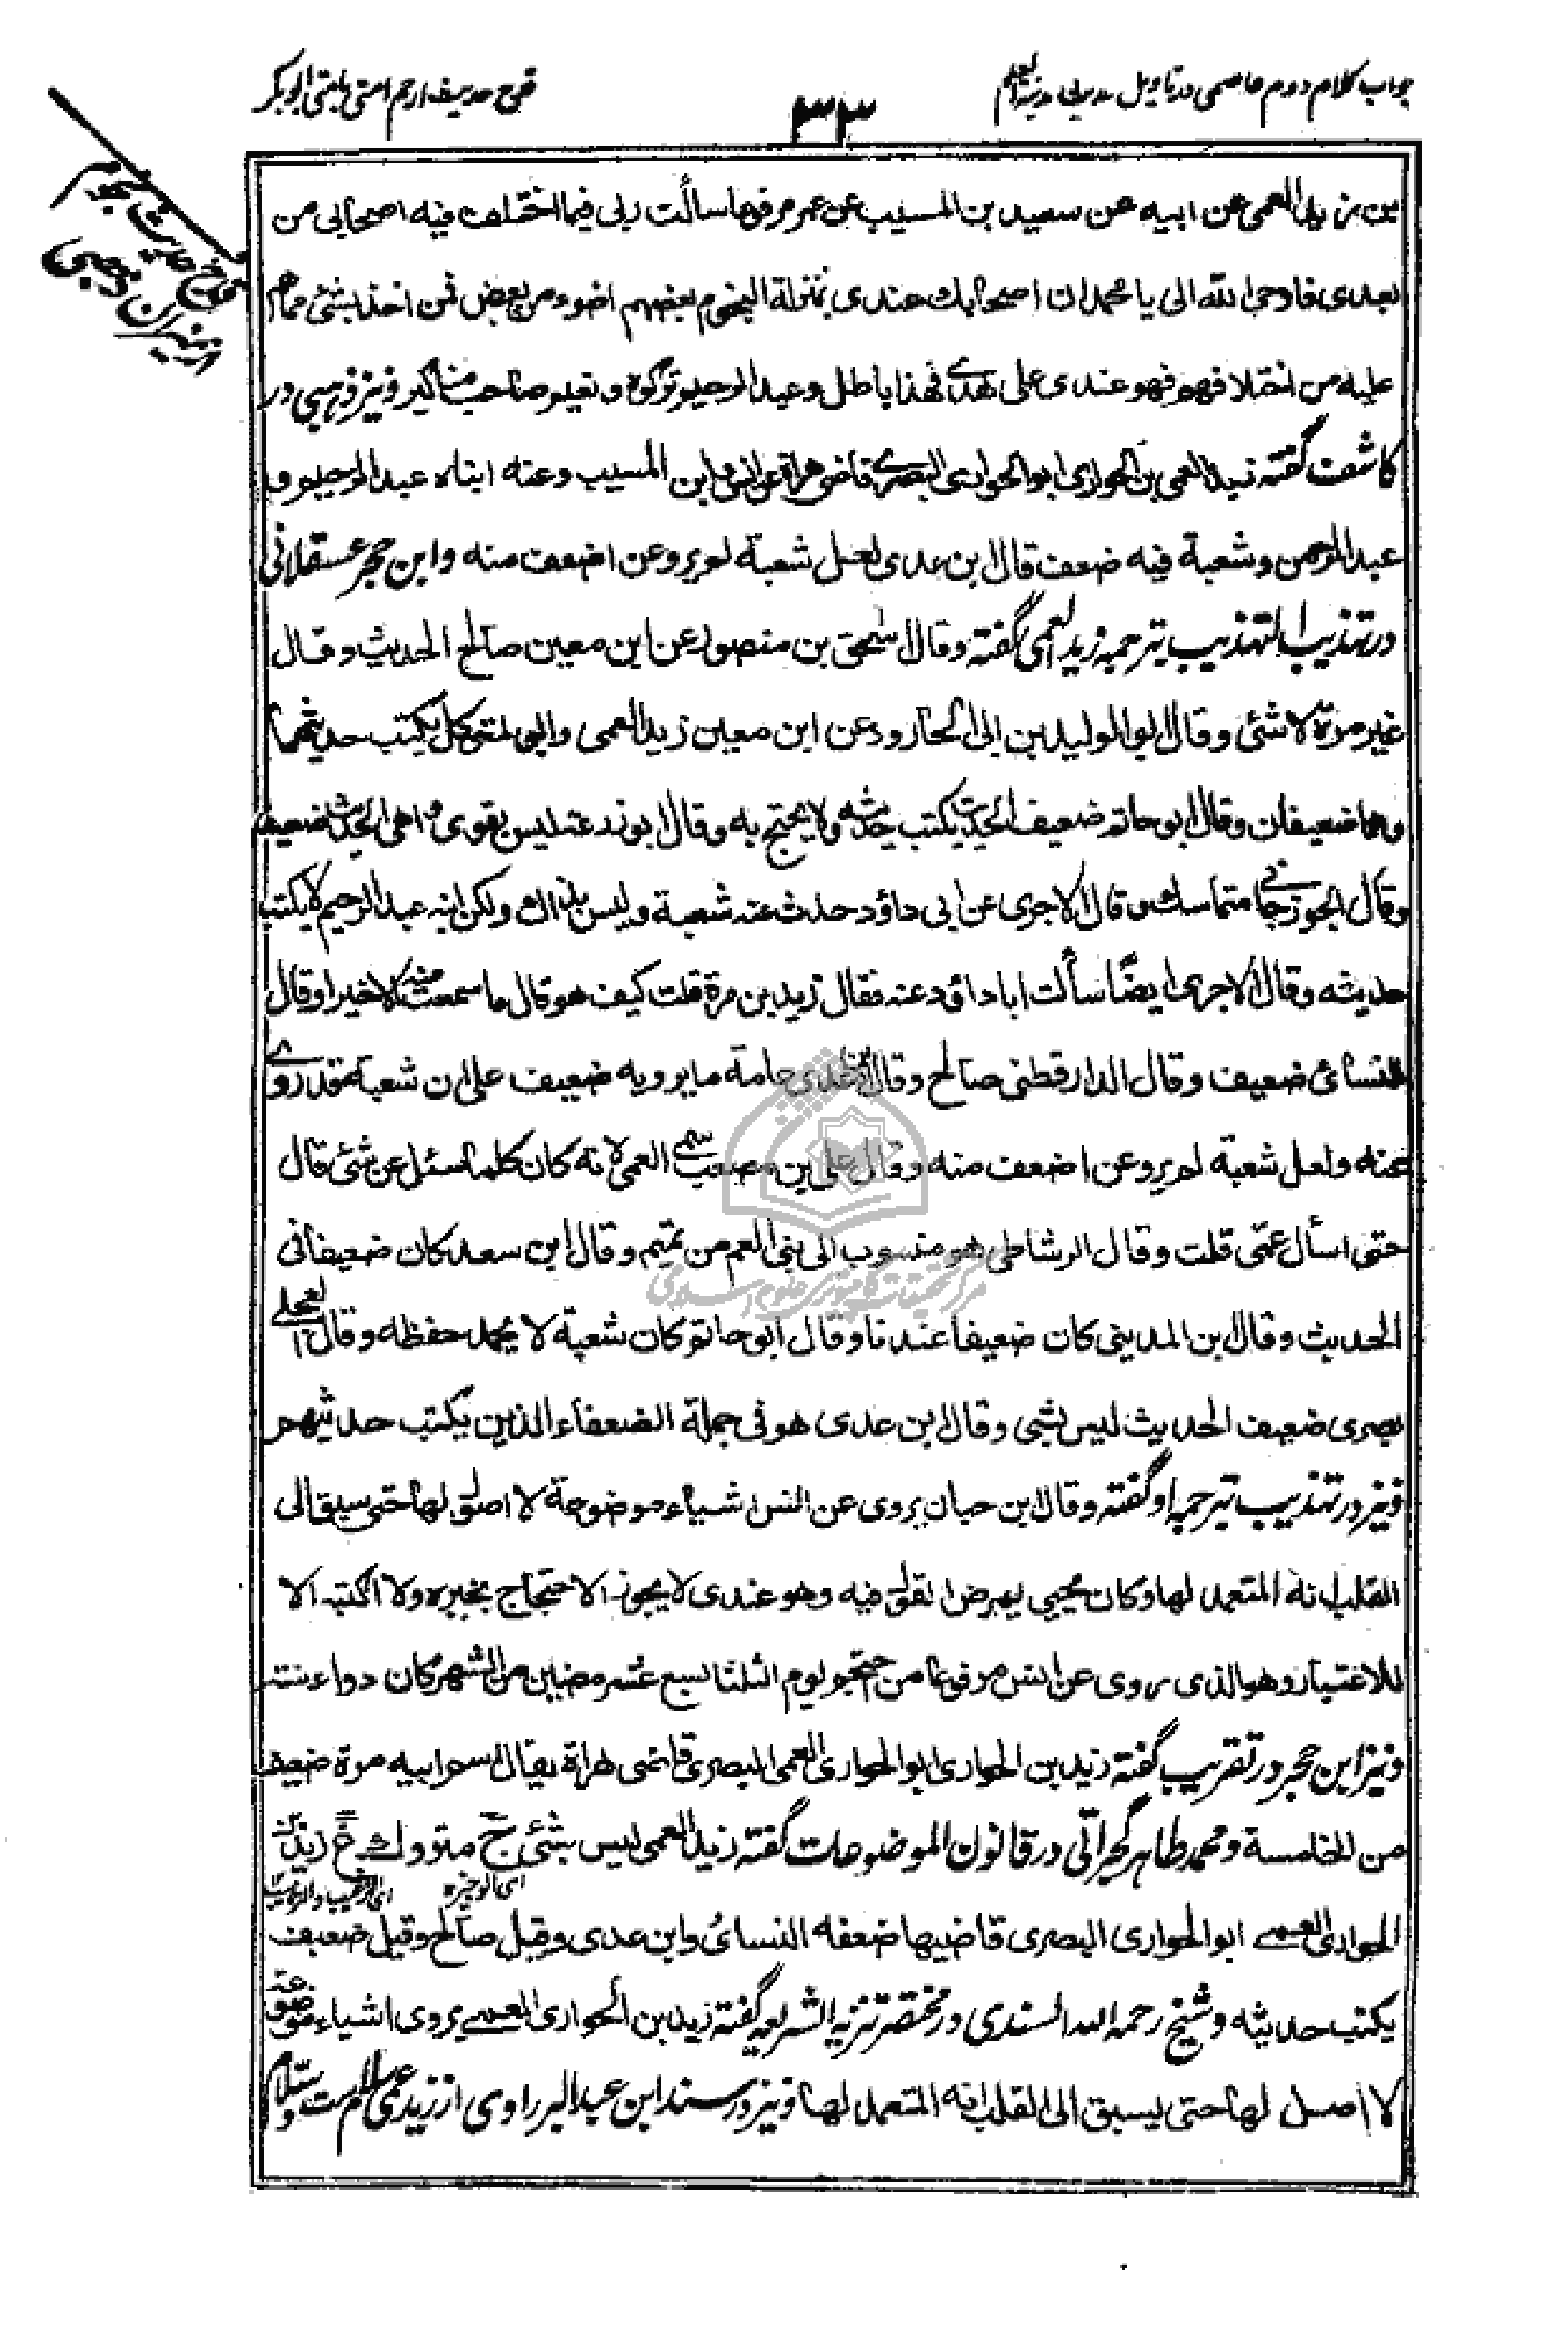 جواب کلام دوم عاصمی در تاویل حدیث مدینة العلم
۳۳
قدح حدیث ارحم امتی بامتی ابوبکر
قدح حدیث نجوم از میزان ذهبی
بن زيد العمى عن ابيه عن سعيد بن المسيب عن عمر مرفوعا سألت ربى فيما اختلف فيه اصحابى من
بعدى فاوحى الله الى يا محمد ان اصحابك عندى بمنزلة النجوم بعضهم اضوء من بعض فمن اخذ بشئ مماهم
عليه من اختلافهم فهو عندى على هدى فهذا باطل وعبد الرحيم تركوه ونعيم صاحب مناكير ونیز ذهبی در
کاشف گفته زيد العمى بن الحوارى ابو الحوارى البصرى قاضى هراة عن انس وابن المسيب وعنه ابناه عبد الرحيم و
عبد الرحمن وشعبة فيه ضعف قال ابن عدى لعل شعبة لم يرو عن اضعف منه وابن حجر عسقلانی
در تهذیب التهذیب بترجمه زید العمی گفته وقال اسحق بن منصور عن ابن معين صالح الحديث وقال
غير مرة لا شئ وقال ابو الوليد بن ابى الجارود عن ابن معين زيد العمى وابو المتوكل يكتب حديثهما
وهما ضعيفان وقال ابو حاتم ضعيف الحديث يكتب حديثه ولا يحتج به وقال ابو زرعة ليس بقوى واهى الحديث ضعيف
وقال الجوزجانى متماسك وقال الاجرى عن ابى داؤد حدث عنه شعبة وليس بذاك ولكن ابنه عبد الرحيم لا يكتب
حديثه وقال الاجرى ايضا سألت ابا داؤد عنه فقال زيد بن مرة قلت كيف هو قال ما سمعت منه الا خيرا وقال
النسائى ضعيف وقال الدارقطنى صالح وقال ابن عدى عامة ما يرويه ضعيف على ان شعبة قد روى
عنه ولعل شعبة لم يرو عن اضعف منه وقال على بن مصعب سمى العمى لانه كان كلما سئل عن شئ قال
حتى اسأل عمى قلت وقال الرشاطى هو منسوب الى بنى العم من تميم وقال ابن سعد كان ضعيفا فى
الحديث وقال ابن المدينى كان ضعيفا عندنا وقال ابو حاتم كان شعبة لا يحمد حفظه وقال العجلى
بصرى ضعيف الحديث ليس بشى وقال ابن عدى هو فى جملة الضعفاء الذين يكتب حديثهم
ونیز در تهذیب بترجمه او گفته وقال ابن حبان يروى عن انس اشياء موضوعة لا اصل لها حتى سبق الى
القلب انه المتعمد لها وكان يحيى يمرض القول فيه وهو عندى لا يجوز الاحتجاج بخبره ولا اكتبه الا
للاعتبار وهو الذى روى عن انس مرفوعا من احتجم يوم الثلثا لسبع عشر مضين من الشهر كان دواء سنة
ونیز ابن حجر در تقریب گفته زيد بن الحوارى ابو الحوارى العمى البصرى قاضى هراة يقال اسم ابيه مرة ضعيف
من الخامسة ومحمد طاهر گجراتی در قانون الموضوعات گفته زيد العمى ليس بشئ ج متروك خ زيد بن
اى الوجيزه
الحوارى العمى ابو الحوارى البصرى قاضيها ضعفه النسائى وابن عدى وقيل صالح وقيل ضعيف
يكتب حديثه وشیخ رحمة الله السندی در مختصر تنزیه الشریعه گفته زيد بن الحوارى العمى يروى اشياء موضوعة
لا اصل لها حتى يسبق الى القلب انه المتعمد لها ونیز در سند ابن عبد البر راوی از زید عمی سلام ست وسلام